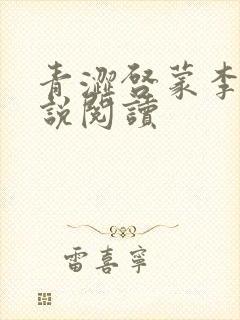 青澀啓蒙李
說閱讀
雷喜寧